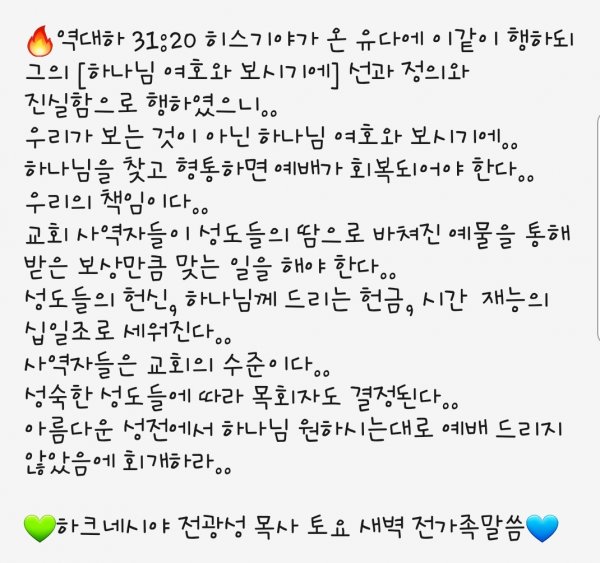 🔥역대하 31:20 히스기야가 온 유다에 이같이 행하되
그의 [하나님 여호와 보시기에] 선과 정의와
진실함으로 행하였으니..
우리가 보는 것이 아닌 하나님 여호와 보시기에..
하나님을 찾고 형통하면 예배가 회복되어야 한다..
우리의 책임이다..
교회 사역자들이 성도들의 땀으로 바쳐진 예물을 통해
받은 보상만큼 맞는 일을 해야 한다..
성도들의 헌신, 하나님께 드리는 헌금, 시간 재능의
십일조로 세워진다..
사역자들은 교회의 수준이다..
성숙한 성도들에 따라 목회자도 결정된다..
아름다운 성전에서 하나님 원하시는대로 예배 드리지
않았음에 회개하라..
💚하크네시야 전광성 목사 토요 새벽 전가족말씀💙